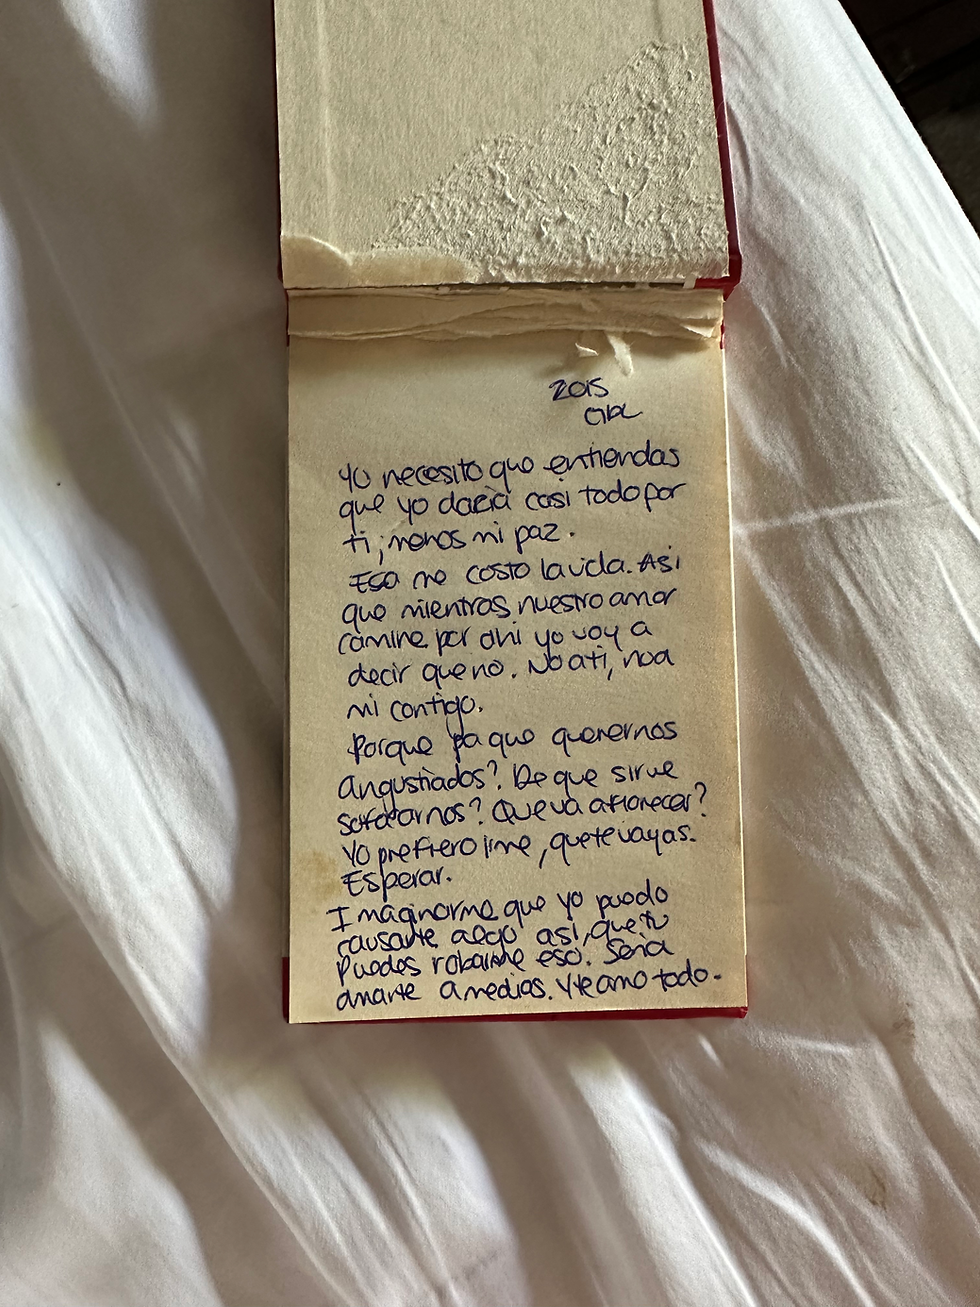 2015
Yo necesito que entiendas
que yo daría casi todo por
ti, menos mi paz.
Esa me costo la vida. Asi
que mientras nuestro amor
camine por ahi yo voy a
decir que no. No a ti, no a
mi contigo.
Porque pa que querernos
angustiados? De que sirve
sofocarnos? Que va a florecer?
Yo prefiero irme, que te vayas.
Esperar.
Imaginarme que yo puedo
causarte algo asi, que tu
Puedes robarme eso. Seria
amarte a medias. Y te amo todo.